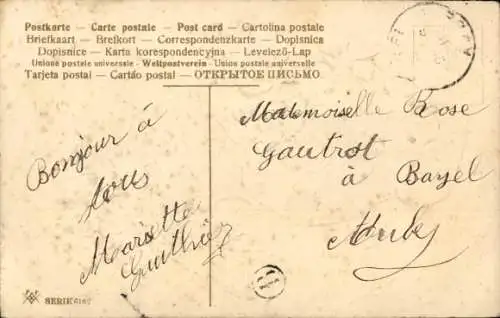 Postkarte — Carte postale — Post card — Cartolina postale
Briefkaart — Brefkort — Correspondenzkarte — Dopisnica
Dopisnice — Karta korespondencyjna — Levelező-Lap
Unione postale universale — Weltpostverein — Union postale universelle
Tarjeta postal — Cartão postal — ОТКРЫТОЕ ПИСЬМО
Mademoiselle Rose
Gautrot
à Bayel
Aube
Bonjour à
tous
Marisette
Gauthier
SERIE